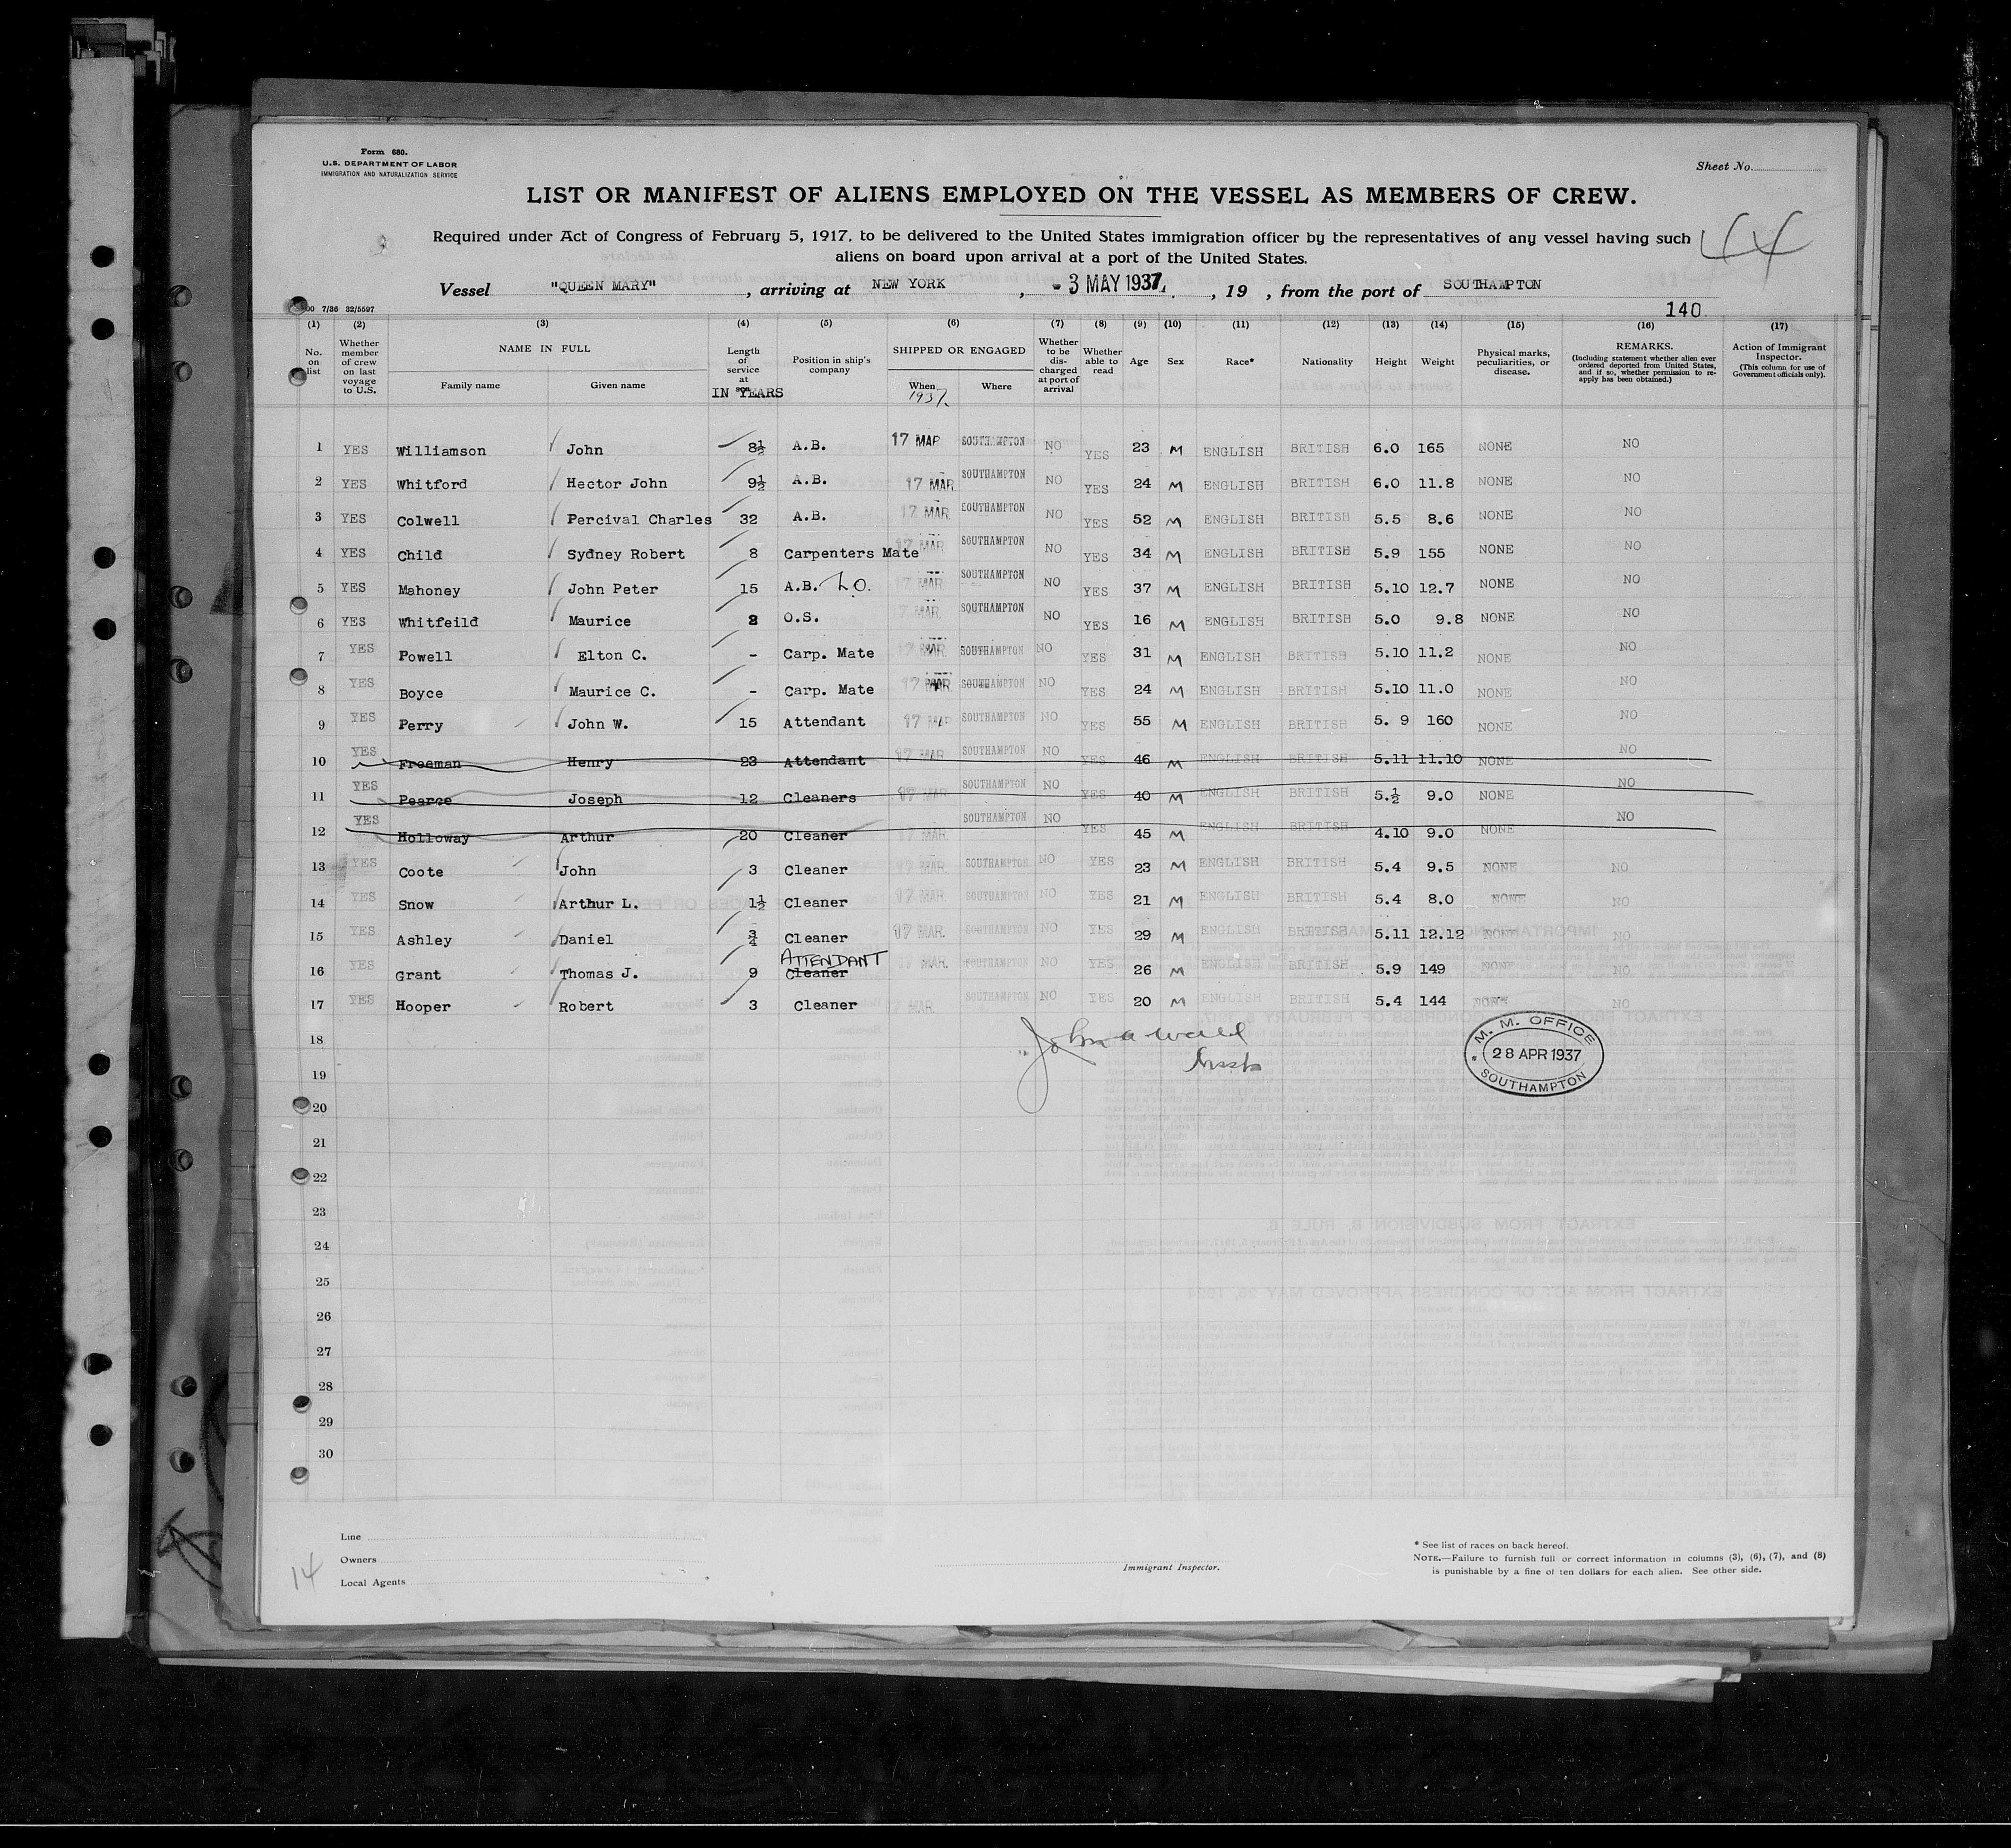 Form 680.
U.S. DEPARTMENT OF LABOR
IMMIGRATION AND NATURALIZATION SERVICE
Sheet No.
LIST OR MANIFEST OF ALIENS EMPLOYED ON THE VESSEL AS MEMBERS OF CREW.
Required under Act of Congress of February 5, 1917, to be delivered to the United States immigration officer by the representatives of any vessel having such
aliens on board upon arrival at a port of the United States.
44
Vessel "QUEEN MARY", arriving at NEW YORK, - 3 MAY 1937, 19 , from the port of SOUTHAMPTON
140
00 7/36 32/5597
(1) (2) (3) (4) (5) (6) (7) (8) (9) (10) (11) (12) (13) (14) (15) (16) (17)
No. on list
Whether member of crew on last voyage to U.S.
NAME IN FULL
Family name Given name
Length of service at sea
IN YEARS
Position in ship's company
SHIPPED OR ENGAGED
When Where
1937.
Whether to be discharged at port of arrival
Whether able to read
Age
Sex
Race*
Nationality
Height
Weight
Physical marks, peculiarities, or disease.
REMARKS.
(Including statement whether alien ever ordered deported from United States, and if so, whether permission to reapply has been obtained.)
Action of Immigrant Inspector.
(This column for use of Government officials only).
1 YES Williamson John 8½ A.B. 17 MAR SOUTHAMPTON NO YES 23 M ENGLISH BRITISH 6.0 165 NONE NO
2 YES Whitford Hector John 9½ A.B. 17 MAR SOUTHAMPTON NO YES 24 M ENGLISH BRITISH 6.0 11.8 NONE NO
3 YES Colwell Percival Charles 32 A.B. 17 MAR. SOUTHAMPTON NO YES 52 M ENGLISH BRITISH 5.5 8.6 NONE NO
4 YES Child Sydney Robert 8 Carpenters Mate 17 MAR SOUTHAMPTON NO YES 34 M ENGLISH BRITISH 5.9 155 NONE NO
5 YES Mahoney John Peter 15 A.B. L.O. 17 MAR SOUTHAMPTON NO YES 37 M ENGLISH BRITISH 5.10 12.7 NONE NO
6 YES Whitfeild Maurice 2 O.S. 17 MAR. SOUTHAMPTON NO YES 16 M ENGLISH BRITISH 5.0 9.8 NONE NO
7 YES Powell Elton C. - Carp. Mate 17 MAR SOUTHAMPTON NO YES 31 M ENGLISH BRITISH 5.10 11.2 NONE NO
8 YES Boyce Maurice C. - Carp. Mate 17 MAR SOUTHAMPTON NO YES 24 M ENGLISH BRITISH 5.10 11.0 NONE NO
9 YES Perry John W. 15 Attendant 17 MAR SOUTHAMPTON NO YES 55 M ENGLISH BRITISH 5. 9 160 NONE NO
10 YES Freeman Henry 23 Attendant 17 MAR SOUTHAMPTON NO YES 46 M ENGLISH BRITISH 5.11 11.10 NONE NO
11 YES Pearce Joseph 12 Cleaners 17 MAR SOUTHAMPTON NO YES 40 M ENGLISH BRITISH 5.½ 9.0 NONE NO
12 YES Holloway Arthur 20 Cleaner 17 MAR. SOUTHAMPTON NO YES 45 M ENGLISH BRITISH 4.10 9.0 NONE NO
13 YES Coote John 3 Cleaner 17 MAR. SOUTHAMPTON NO YES 23 M ENGLISH BRITISH 5.4 9.5 NONE NO
14 YES Snow Arthur L. 1½ Cleaner 17 MAR. SOUTHAMPTON NO YES 21 M ENGLISH BRITISH 5.4 8.0 NONE NO
15 YES Ashley Daniel ¾ Cleaner 17 MAR. SOUTHAMPTON NO YES 29 M ENGLISH BRITISH 5.11 12.12 NONE NO
ATTENDANT
16 YES Grant Thomas J. 9 Cleaner MAR. SOUTHAMPTON NO YES 26 M ENGLISH BRITISH 5.9 149 NONE NO
17 YES Hooper Robert 3 Cleaner 17 MAR. SOUTHAMPTON NO YES 20 M ENGLISH BRITISH 5.4 144 NONE NO
18
19
20
21
22
23
24
25
26
27
28
29
30
M. M. OFFICE
28 APR 1937
SOUTHAMPTON
Line
Owners
Local Agents
14
Immigrant Inspector.
* See list of races on back hereof.
NOTE.—Failure to furnish full or correct information in columns (3), (6), (7), and (8)
is punishable by a fine of ten dollars for each alien. See other side.